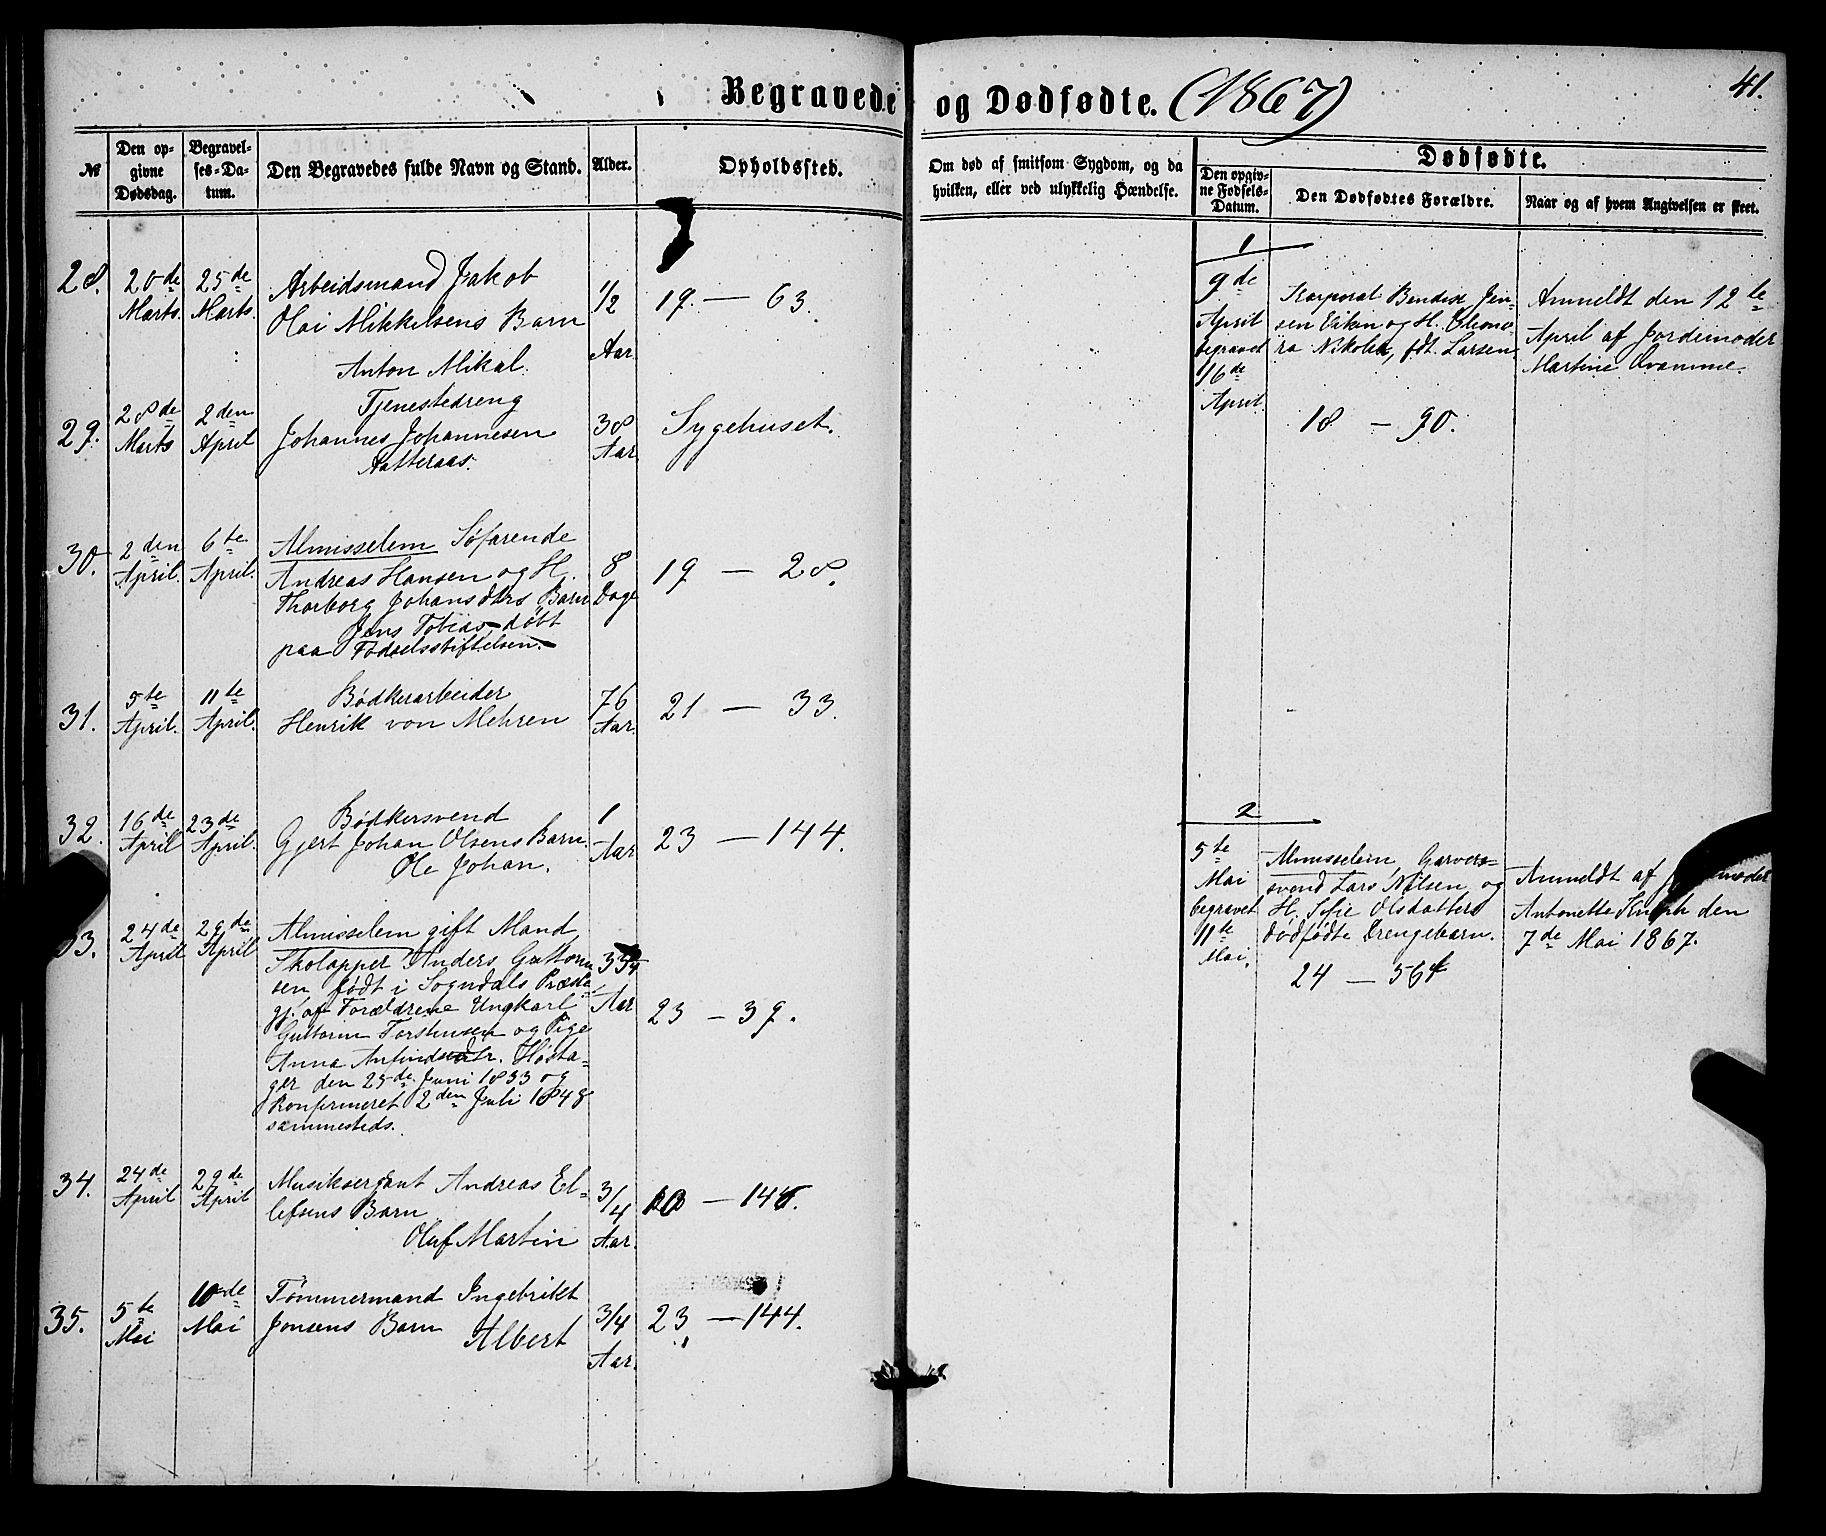 Begravede og Dødfødte. (1867)
41.
№
Den op-
givne
Dødsdag.
Begravel-
ses-Da-
tum.
Den Begravedes fulde Navn og Stand.
Alder.
Opholdssted.
Om død af smitsom Sygdom, og da
hvilken, eller ved ulykkelig Hændelse.
Dødfødte.
Den opgiv-
ne Fødsels-
Datum.
Den Dødfødtes Forældre.
Naar og af hvem Angivelsen er skeet.
28.
20de
Marts.
25de
Marts.
Arbeidsmand Jakob
Olai Mikkelsens Barn
Anton Mikal.
1/2
Aar.
19. — 63.
29.
28de
Marts
2den
April
Tjenestedreng
Johannes Johannesen
Aatteraas.
38
Aar.
Sygehuset.
30.
2den
April.
6te
April.
Almisselem Søfarende
Andreas Hansen og H.
Thorborg Johansdtrs Barn
Jens Tobias døbt
paa Fødselsstiftelsen.
8
Dage
19 — 28.
31.
5te
April.
11te
April.
Bødkerarbeider
Henrik von Mehren
76
Aar.
21 — 33.
32.
16de
April
23de
April.
Bødkersvend
Gjert Johan Olsens Barn
Ole Johan.
1
Aar.
23 — 144.
33.
24de
April
29de
April
Almisselem gift Mand,
Skolapper Anders Guttorm
sen født i Sogndals Præste-
gj. af Forældrene Ungkarl
Guttorm Torstensen og Pige
Anna Anfindsdtr. Høsta-
ger den 25de Juni 1833 og
konfirmeret 2den Juli 1848
sammesteds.
Aar
23 — 39.
34.
24de
April
29de
April
Musiksergant Andreas El-
lefsens Barn
Oluf Martin
3/4
Aar.
35.
5te
Mai
10de
Mai
Tømmermand Ingebrikt
Jonsens Barn
Albert
3/4
Aar.
23 — 144.
1
9de
April
begravet
16de
April.
Korporal Bendix Jen-
sen Eiken og H.
ra Nikolea, fdt. Larsen
18 — 90.
Anmeldt den 12te
April af Jordemoder
Martine Kvamme.
2
5te
Mai
begravet
11te
Mai.
Almisselem, Garver-
svend Lars Nilsen og
H. Sofie Olsdatters
dødfødte Drengebarn.
24 — 56f
Anmeldt af
Antonette den
7de Mai 1867.